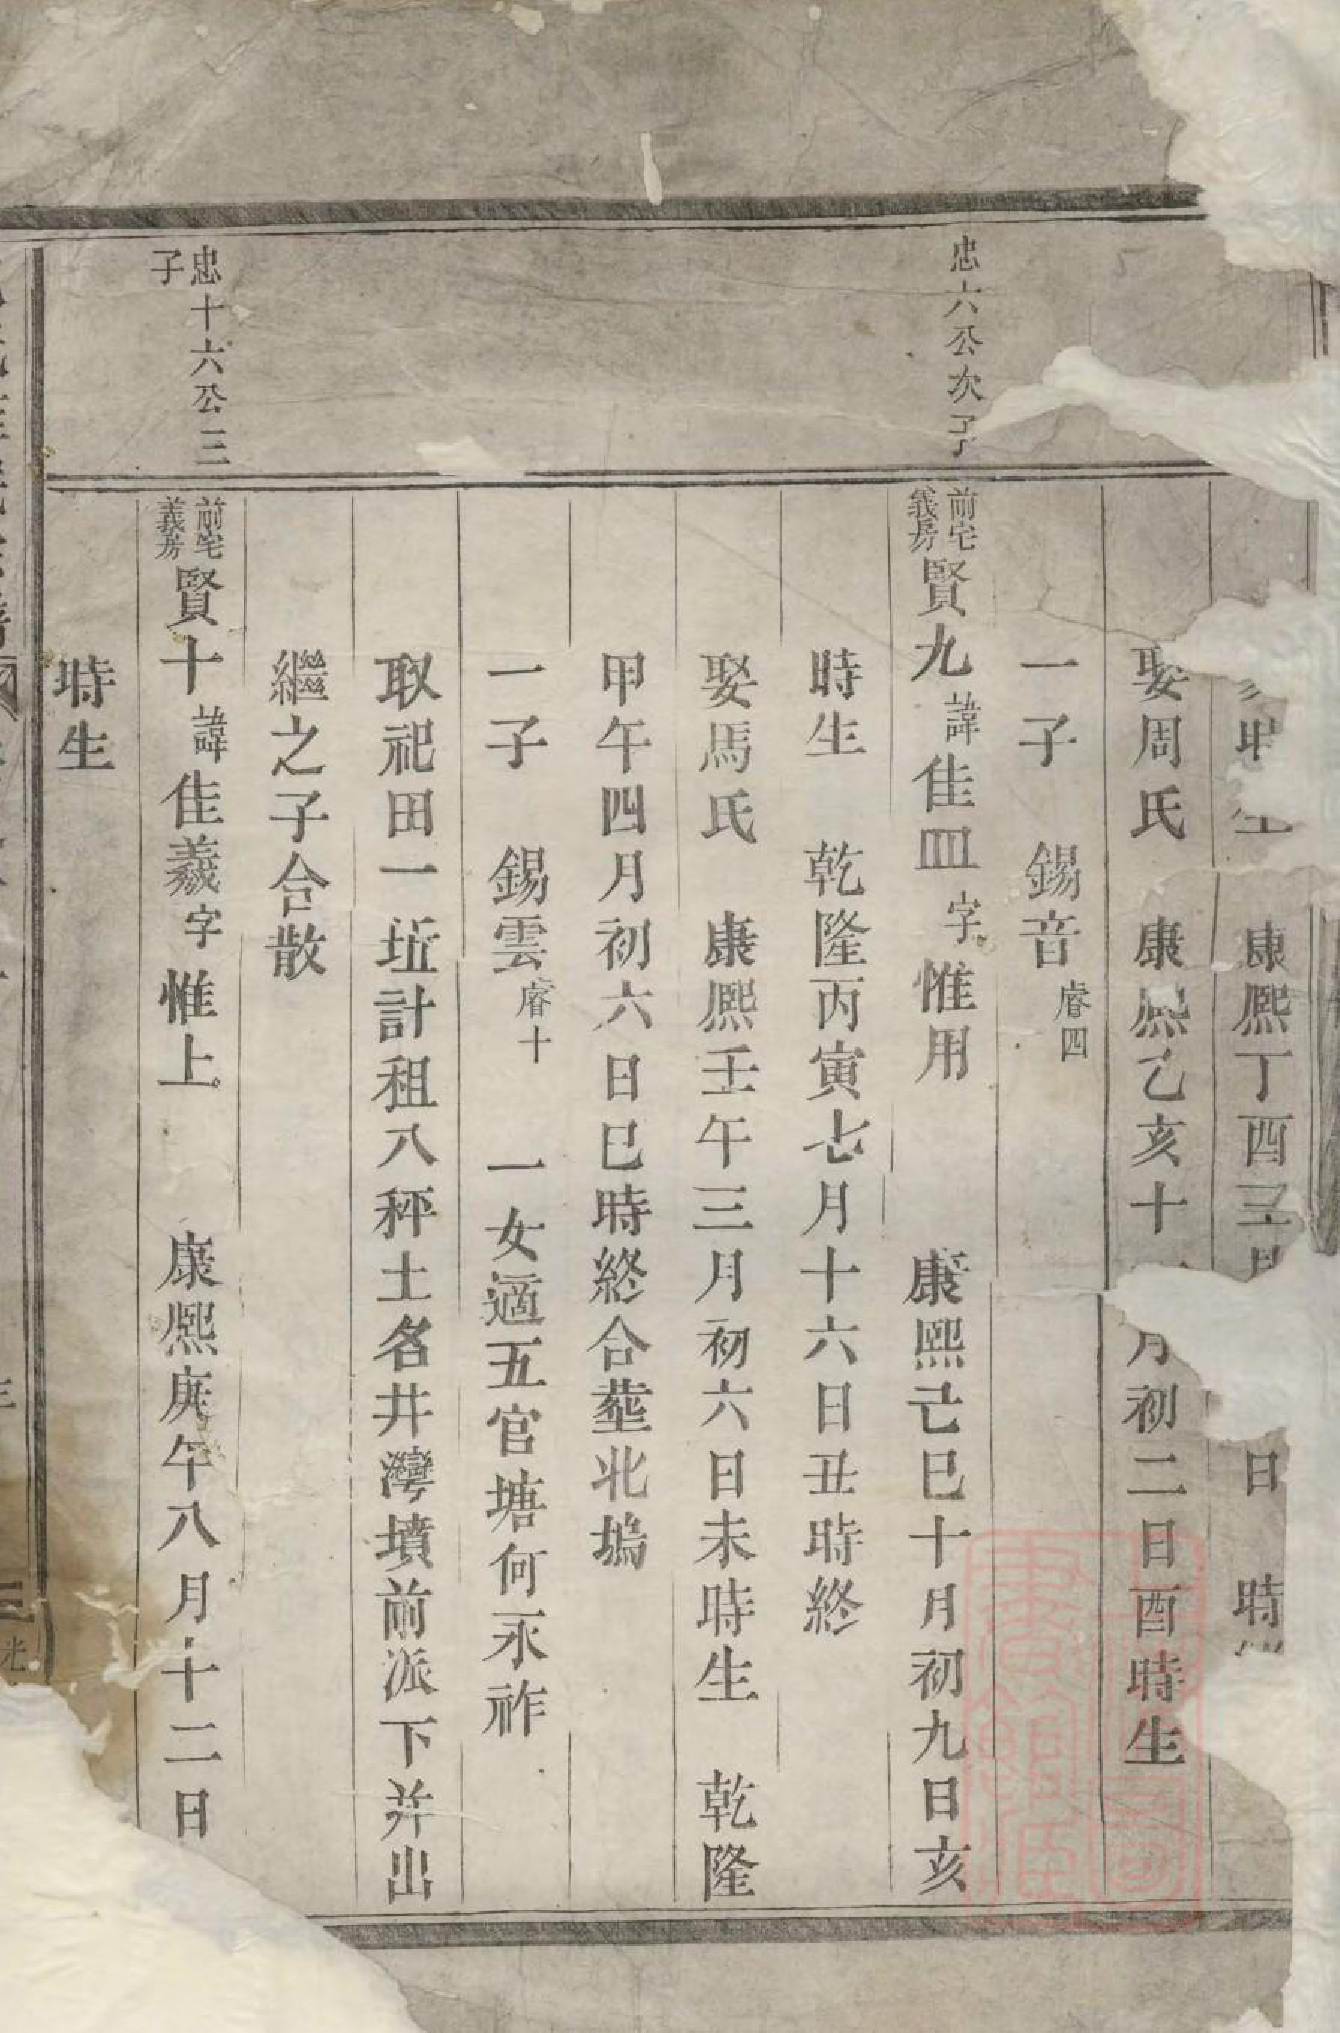 康熙丁酉三月 日 時
娶周氏 康熙乙亥十 月初二日酉時生
一子 錫音 睿四
忠六公次子
前宅義房 賢九 諱 佳皿 字 惟用 康熙己巳十月初九日亥
時生 乾隆丙寅七月十六日丑時終
娶馬氏 康熙壬午三月初六日未時生 乾隆
甲午四月初六日巳時終合塟北塢
一子 錫雲 睿十 一女適五官塘何永祚
取祀田一坵計租八秤土名井灣墳前派下并出
繼之子合散
忠十六公三子
前宅義房 賢十 諱 佳羲 字 惟上 康熙庚午八月十二日
時生